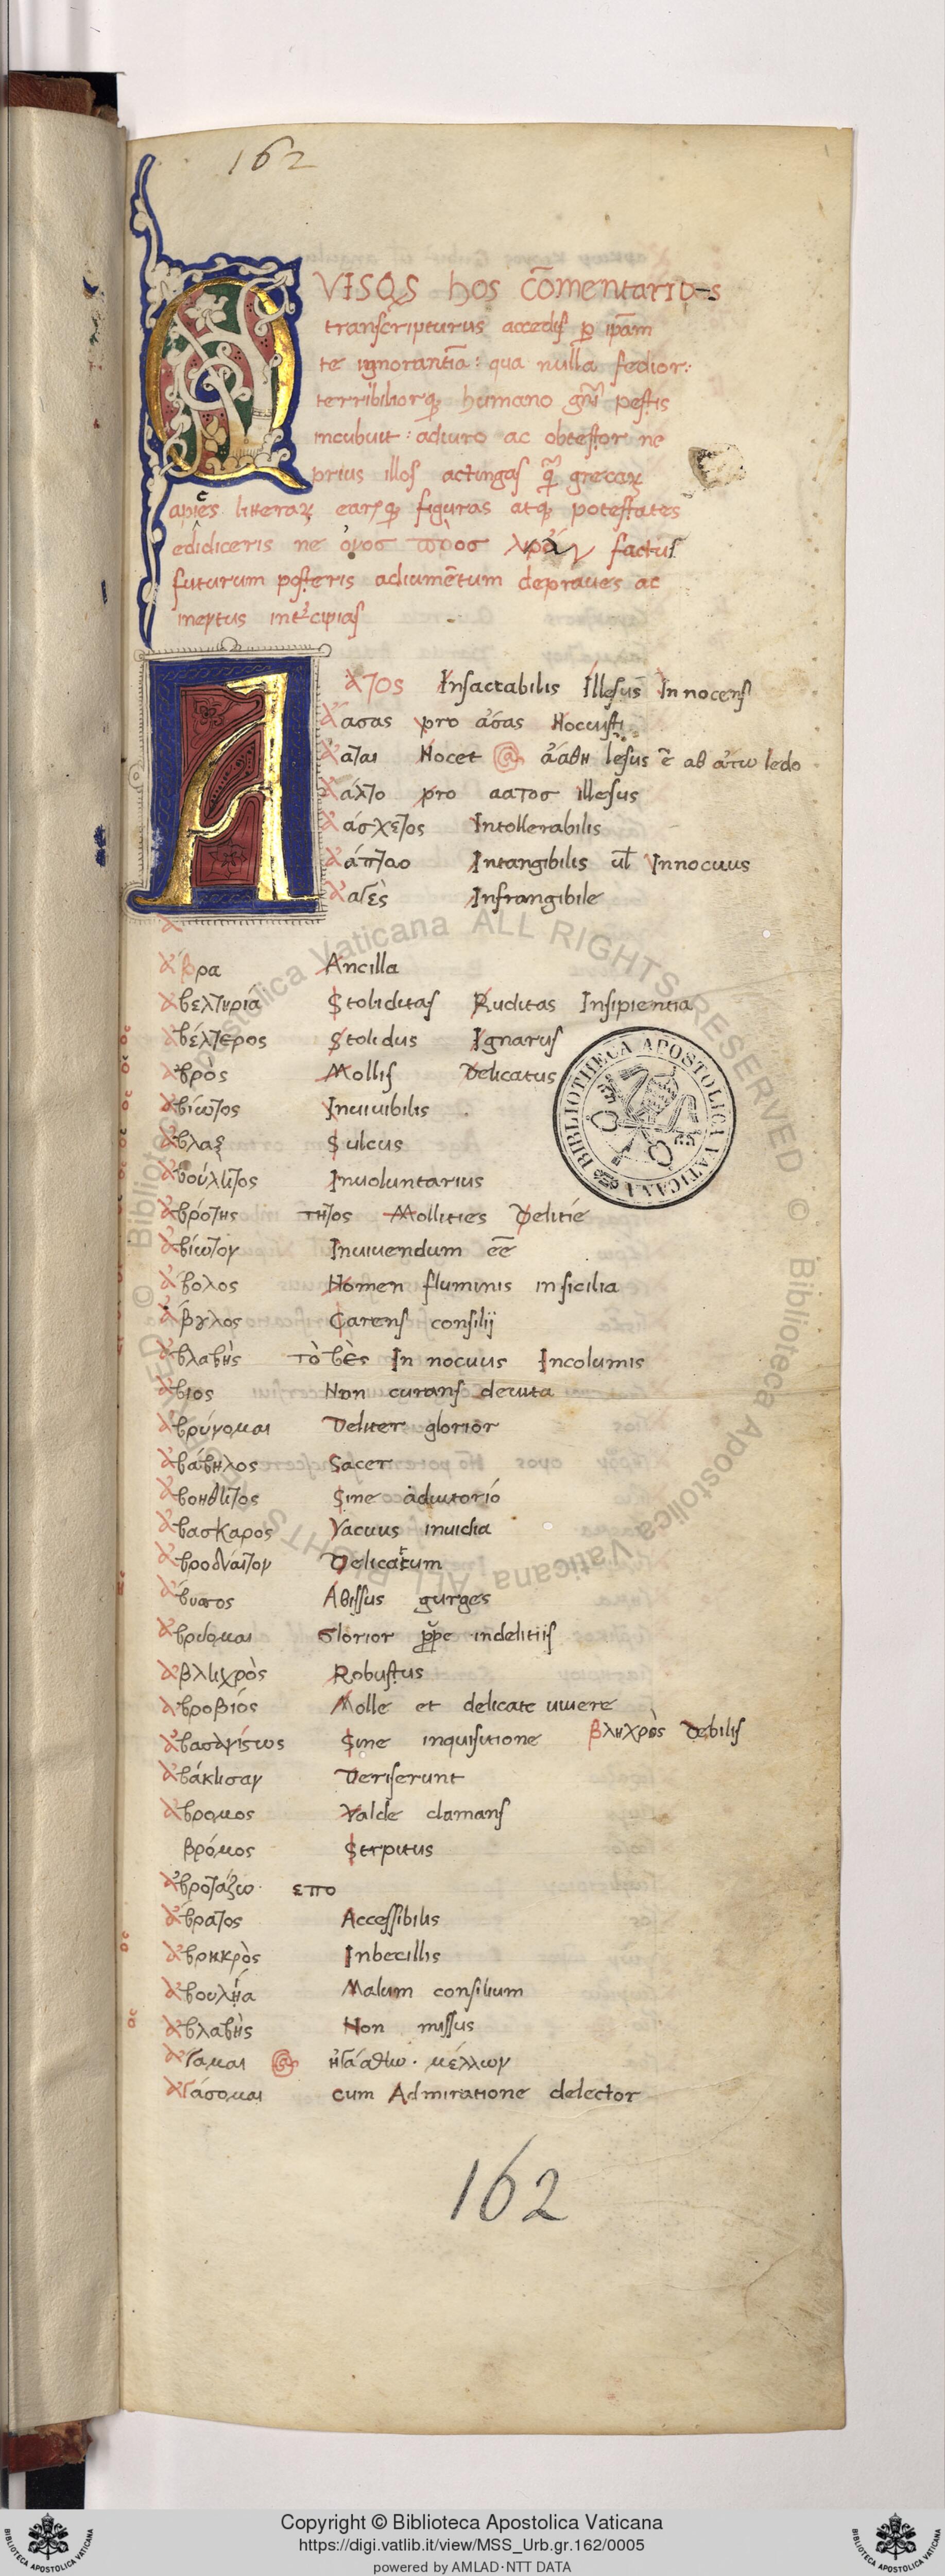 162
QVISQS hos cōmentarios
transcripturus accedis p ipam
te ignorantia: qua nulla fedior:
terribiliorq humano gni pestis
incubuit: adiuro ac obtestor ne
prius illos actingas q grecaꝝ
apices litteraꝝ earꝝq figuras atq potestates
edidiceris ne ὄνοσ πρὸσ λύραν factus
futurum posteris adiumētum depraues ac
ineptus intcipias
Ἄατος Insactabilis Illesus Innocens
Ἄασας pro ἀάσας Nocuisti
Ἀᾶται Nocet @ ἀάθη lesus ē ab ἀάτω ledo
Ἄάατο pro αατοσ illesus
Ἀάσχετος Intollerabilis
Ἀάπταο Intangibilis ul Innocuus
Ἀαγὲς Infrangibile
Ἅβρα Ancilla
Ἀβελτυρία Stoliditas Ruditas Insipientia
Ἀβέλτερος Stolidus Ignarus
Ἁβρὸς Mollis Delicatus
Ἀβίωτος Inuiuibilis
Ἄβλαξ Sulcus
Ἀβούλητος Inuoluntarius
Ἁβρότης τητος Mollities Delitie
Ἀβίωτον Inuiuendum ēē
Ἄβολος Nomen fluminis in sicilia
Ἄβγλος Carens consilij
Ἀβλαβὴς τὸ βὲς Innocuus Incolumis
Ἄβιος Non curans deuita
Ἁβρύνομαι Deliter glorior
Ἀβάβηλος Sacer
Ἀβοήθητος Sine adiutorio
Ἀβασκαρος Vacuus inuidia
Ἁβροδίαιτον Delicatum
Ἄβυσσος Abissus gurges
Ἁβρύομαι Glorior ppe indelitiis
Ἀβληχρὸς Robustus
Ἁβροβιός Molle et delicate uiuere
Ἀβασανίστως Sine inquisitione βληχρὸς debilis
Ἀβάκησαν Deriserunt
Ἄβρομος Valde clamans
βρόμος Strpitus
Ἀβροτάξω επο
Ἄβρατος Accessibilis
Ἀβρηκρὸς Inbecillis
Ἀβουλήα Malum consilium
Ἀβλαβὴς Non missus
Ἄγαμαι @ ἠγάσθω. μέλλων
Ἀγάσομαι cum Admiratione delector
162
BIBLIOTHECA APOSTOLICA VATICANA
Copyright © Biblioteca Apostolica Vaticana
https://digi.vatlib.it/view/MSS_Urb.gr.162/0005
powered by AMLAD·NTT DATA